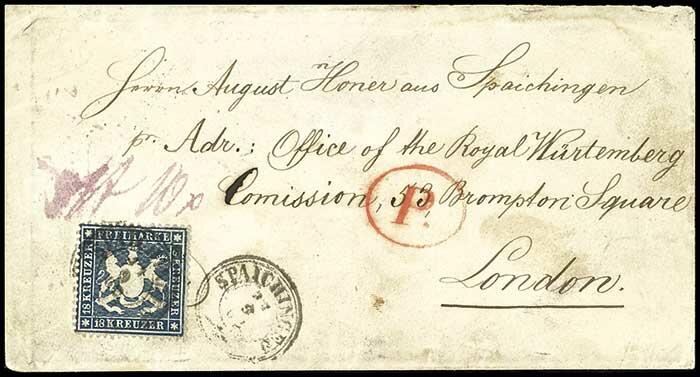 Herrn August Honer aus Spaichingen
pr Adr.: Office of the Royal Würtemberg
Comission, 53, Brompton Square
London.
P.
FREIMARKE
18 KREUZER
18 KREUZER
SPAICHINGEN